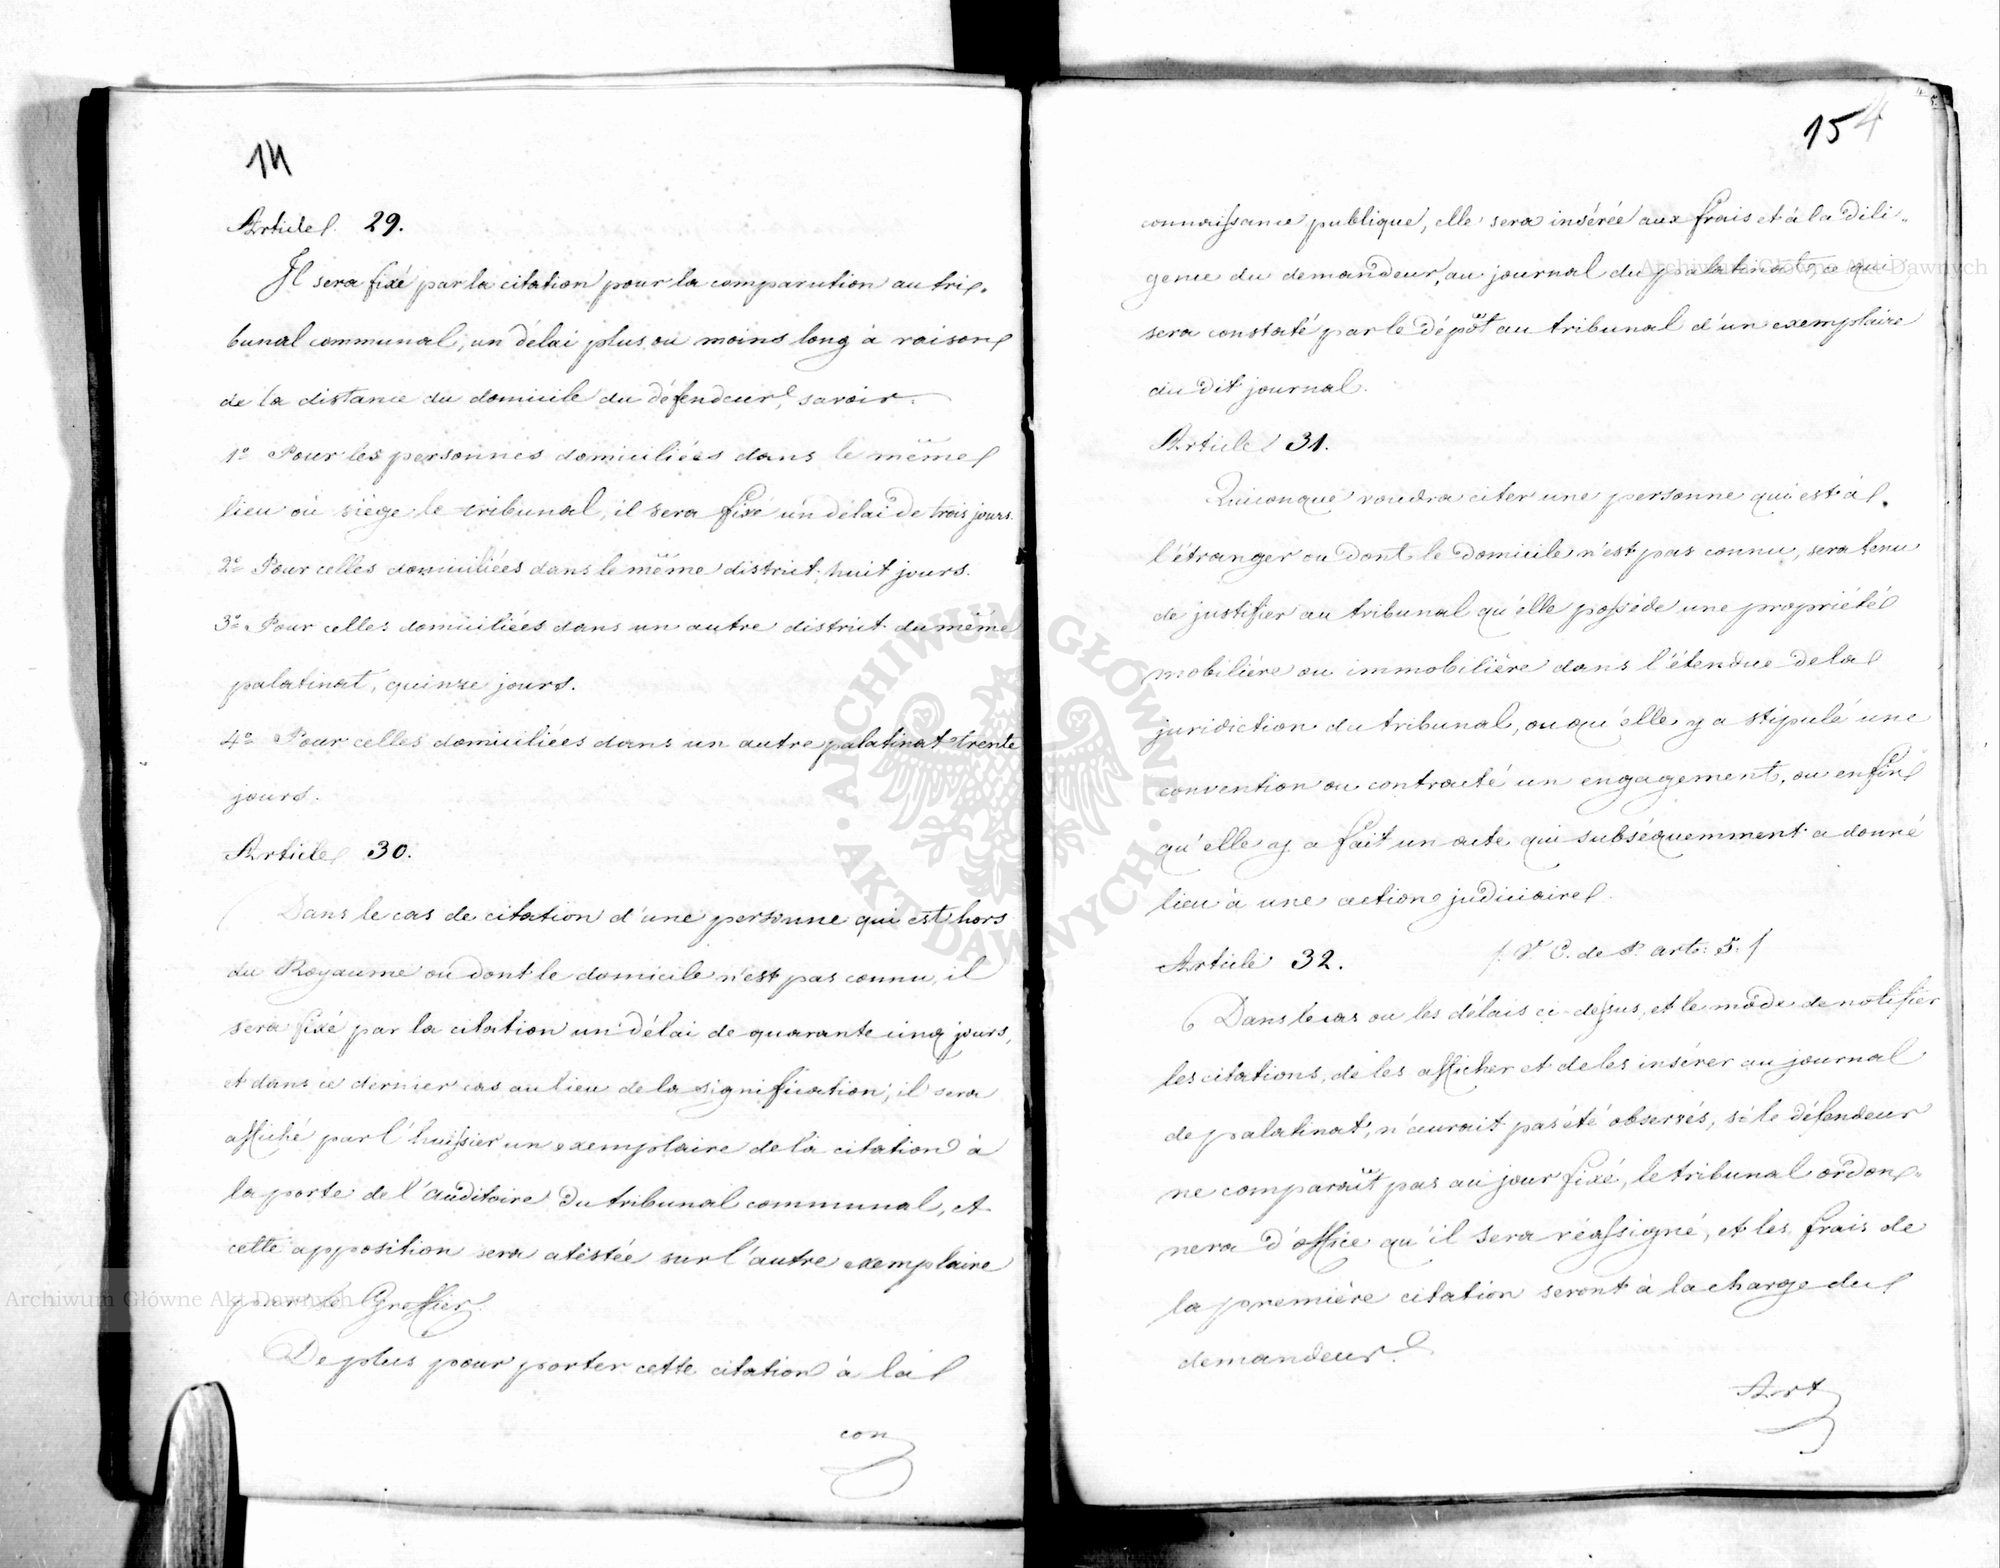 14
Article 29.
Il sera fixé par la citation pour la comparution au tri-
bunal communal, un délai plus ou moins long à raison
de la distance du domicile du défendeur, savoir.
1º Pour les personnes domiciliées dans le même
lieu où siège le tribunal, il sera fixé un délai de trois jours.
2º Pour celles domiciliées dans le même district, huit jours.
3º Pour celles domiciliées dans un autre district du même
palatinat, quinze jours.
4º Pour celles domiciliées dans un autre palatinat trente
jours.
Article 30.
Dans le cas de citation d'une personne qui est hors
du Royaume ou dont le domicile n'est pas connu, il
sera fixé par la citation un délai de quarante cinq jours,
et dans ce dernier cas au lieu de la signification, il sera
affiché par l'huissier un exemplaire de la citation à
la porte de l'auditoire du tribunal communal, et
cette apposition sera atestée sur l'autre exemplaire
par le Greffier.
De plus pour porter cette citation à la
con
154
connaissance publique, elle sera insérée aux frais et à la dili-
gence du demandeur, au journal du palatinat, ce qui
sera constaté par le dépôt au tribunal d'un exemplaire
du dit journal.
Article 31.
Quiconque voudra citer une personne qui est à
l'étranger ou dont le domicile n'est pas connu, sera tenu
de justifier au tribunal qu'elle possède une propriété
mobilière ou immobilière dans l'étendue de la
juridiction du tribunal, ou qu'elle y a stipulé une
convention ou contracté un engagement, ou enfin
qu'elle y a fait un acte qui subséquemment a donné
lieu à une action judiciaire.
Article 32. /. V. C. de P. art: 5. /
Dans le cas ou les délais ci-dessus, et le mode de notifier
les citations, de les afficher et de les insérer au journal
de palatinat, n'aurait pas été observés, si le défendeur
ne comparaît pas au jour fixé, le tribunal ordon-
nera d'office qu'il sera réassigné, et les frais de
la première citation seront à la charge du
demandeur.
Art
ARCHIWUM GŁÓWNE AKT DAWNYCH
Archiwum Główne Akt Dawnych
Archiwum Główne Akt Dawnych